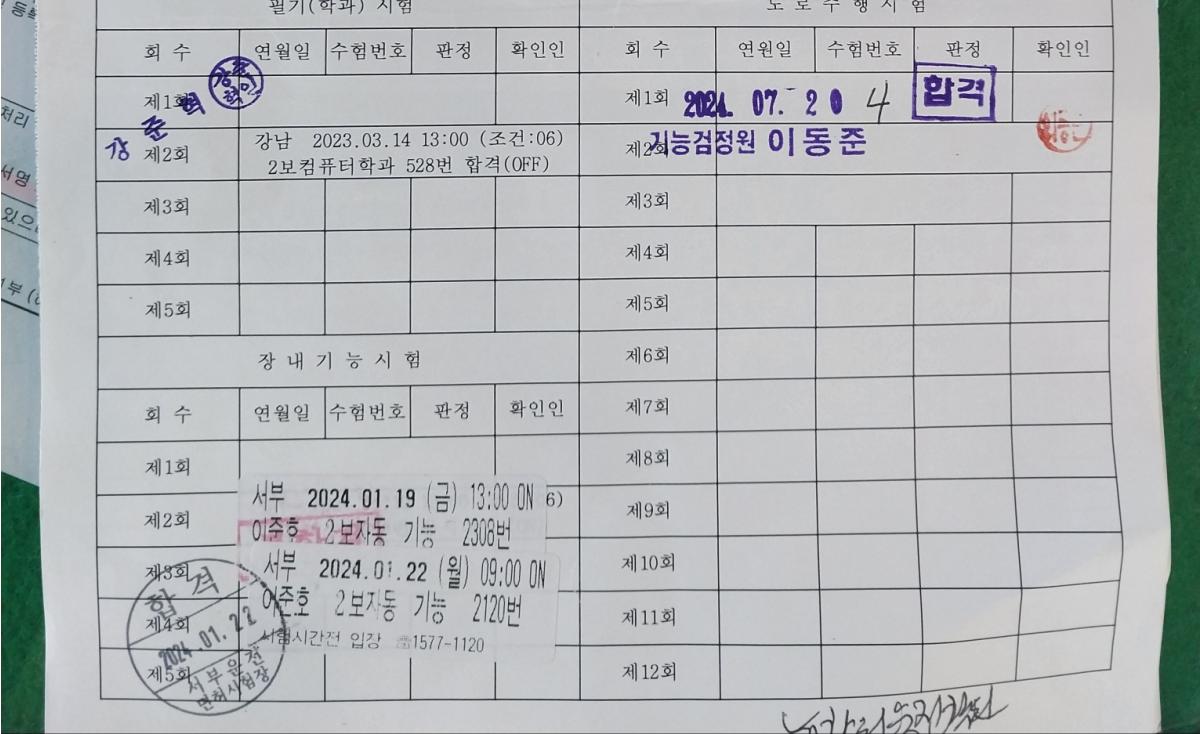 등록
처리
서명
있으
부
필기(학과) 시험
회 수 연월일 수험번호 판정 확인인
제1회
강준혁
강준혁인
제2회 강남 2023.03.14 13:00 (조건:06)
2보컴퓨터학과 528번 합격(OFF)
제3회
제4회
제5회
장내기능시험
회 수 연월일 수험번호 판정 확인인
제1회
제2회
서부 2024.01.19 (금) 13:00 ON 6)
이준호 2보자동 기능 2308번
제3회
서부 2024.01.22 (월) 09:00 ON
이준호 2보자동 기능 2120번
제4회
시험시간전 입장 ☎1577-1120
제5회
합격
2024.01.22
서부운전
면허시험장
도로주행시험
회 수 연원일 수험번호 판정 확인인
제1회 2024. 07. - 20 4 합격
제2회 기능검정원 이동준
제3회
제4회
제5회
제6회
제7회
제8회
제9회
제10회
제11회
제12회